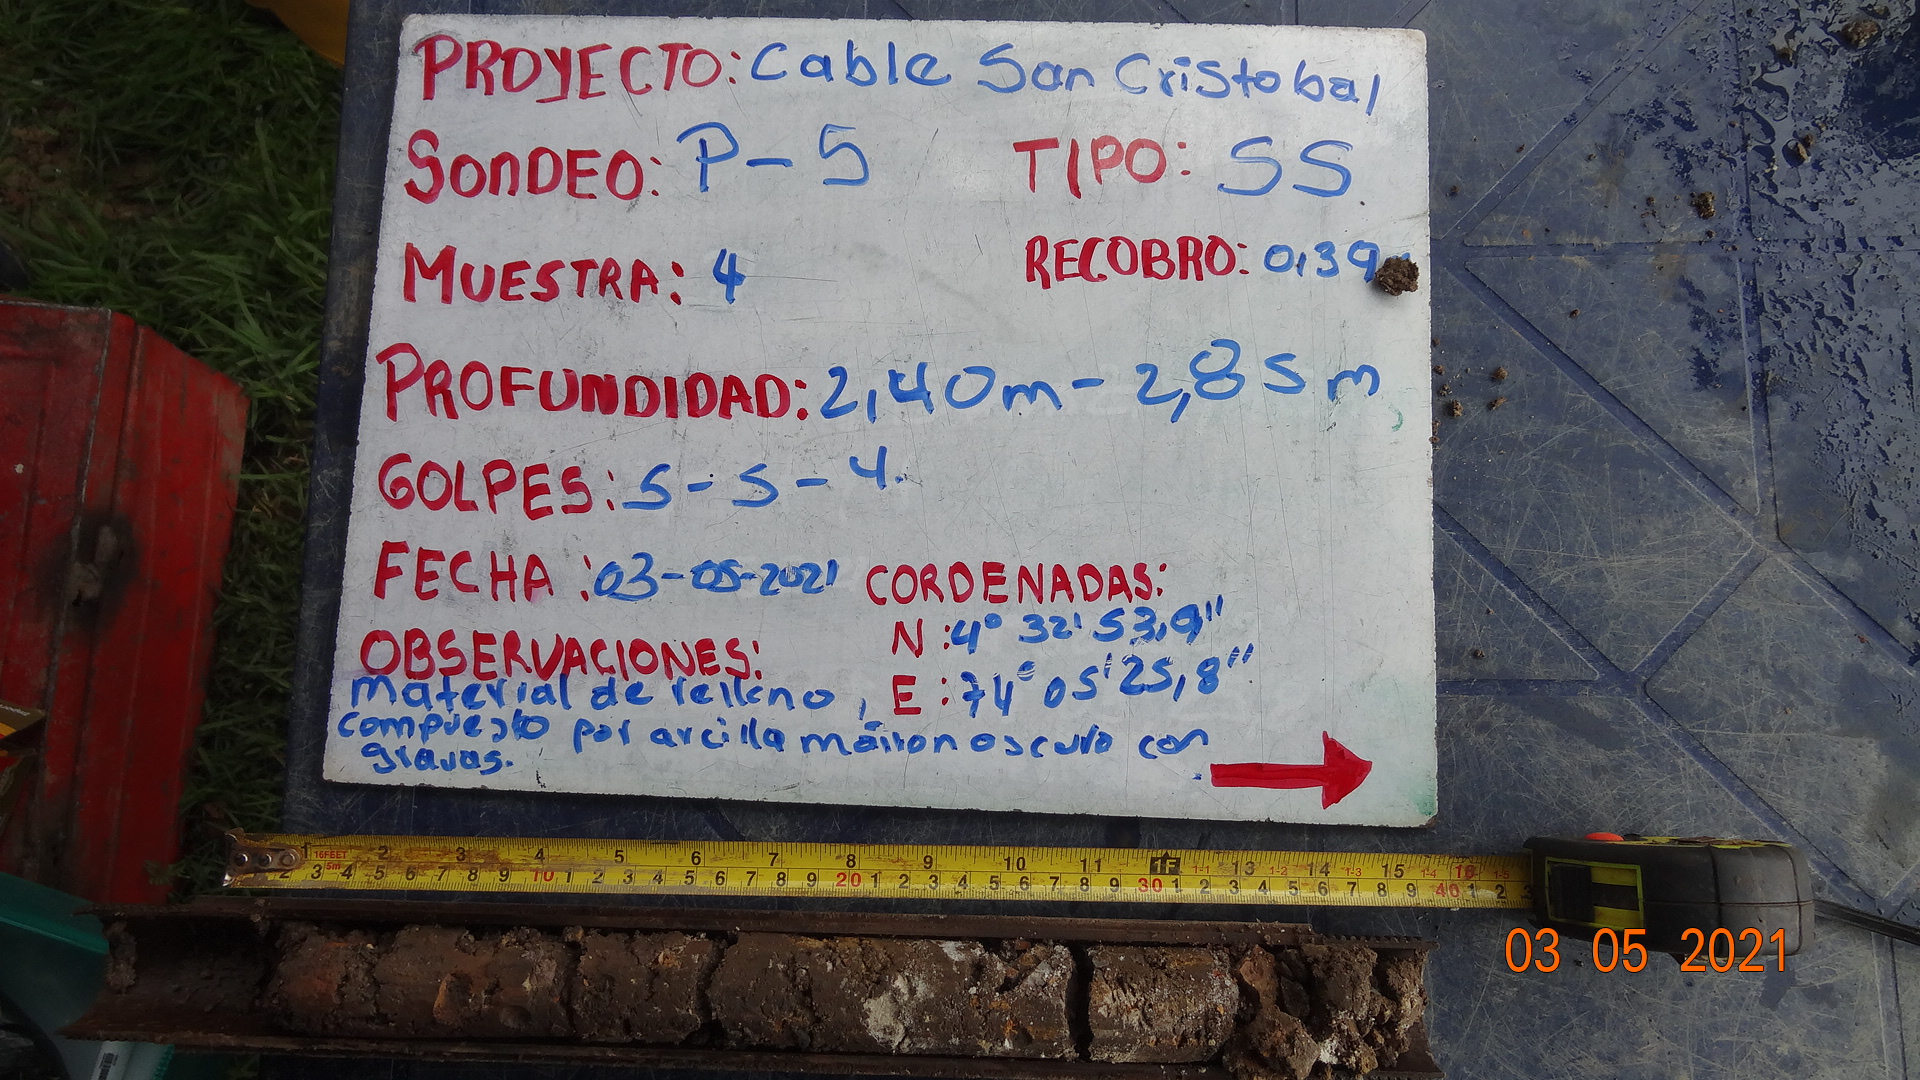 PROYECTO: Cable San Cristobal
SONDEO: P-5 TIPO: SS
MUESTRA: 4 RECOBRO: 0,39
PROFUNDIDAD: 2,40m - 2,85m
GOLPES: 5-5-4.
FECHA: 03-05-2021 CORDENADAS:
N: 4° 32' 53,9"
OBSERVACIONES: E: 74° 05' 25,8"
material de relleno,
compuesto por arcilla marron oscuro con
gravas.
1 2 3 4 5 6 7 8 9 10 11 1F 13 14 15 16
16FEET 1-1 1-2 1-3 1-4 1-5
5m 2 3 4 5 6 7 8 9 10 1 2 3 4 5 6 7 8 9 20 1 2 3 4 5 6 7 8 9 30 1 2 3 4 5 6 7 8 9 40 1 2
03 05 2021